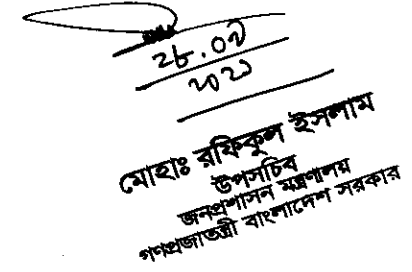 ২৮.০৭
২০২১
মোহাঃ রফিকুল ইসলাম
উপসচিব
জনপ্রশাসন মন্ত্রণালয়
গণপ্রজাতন্ত্রী বাংলাদেশ সরকার